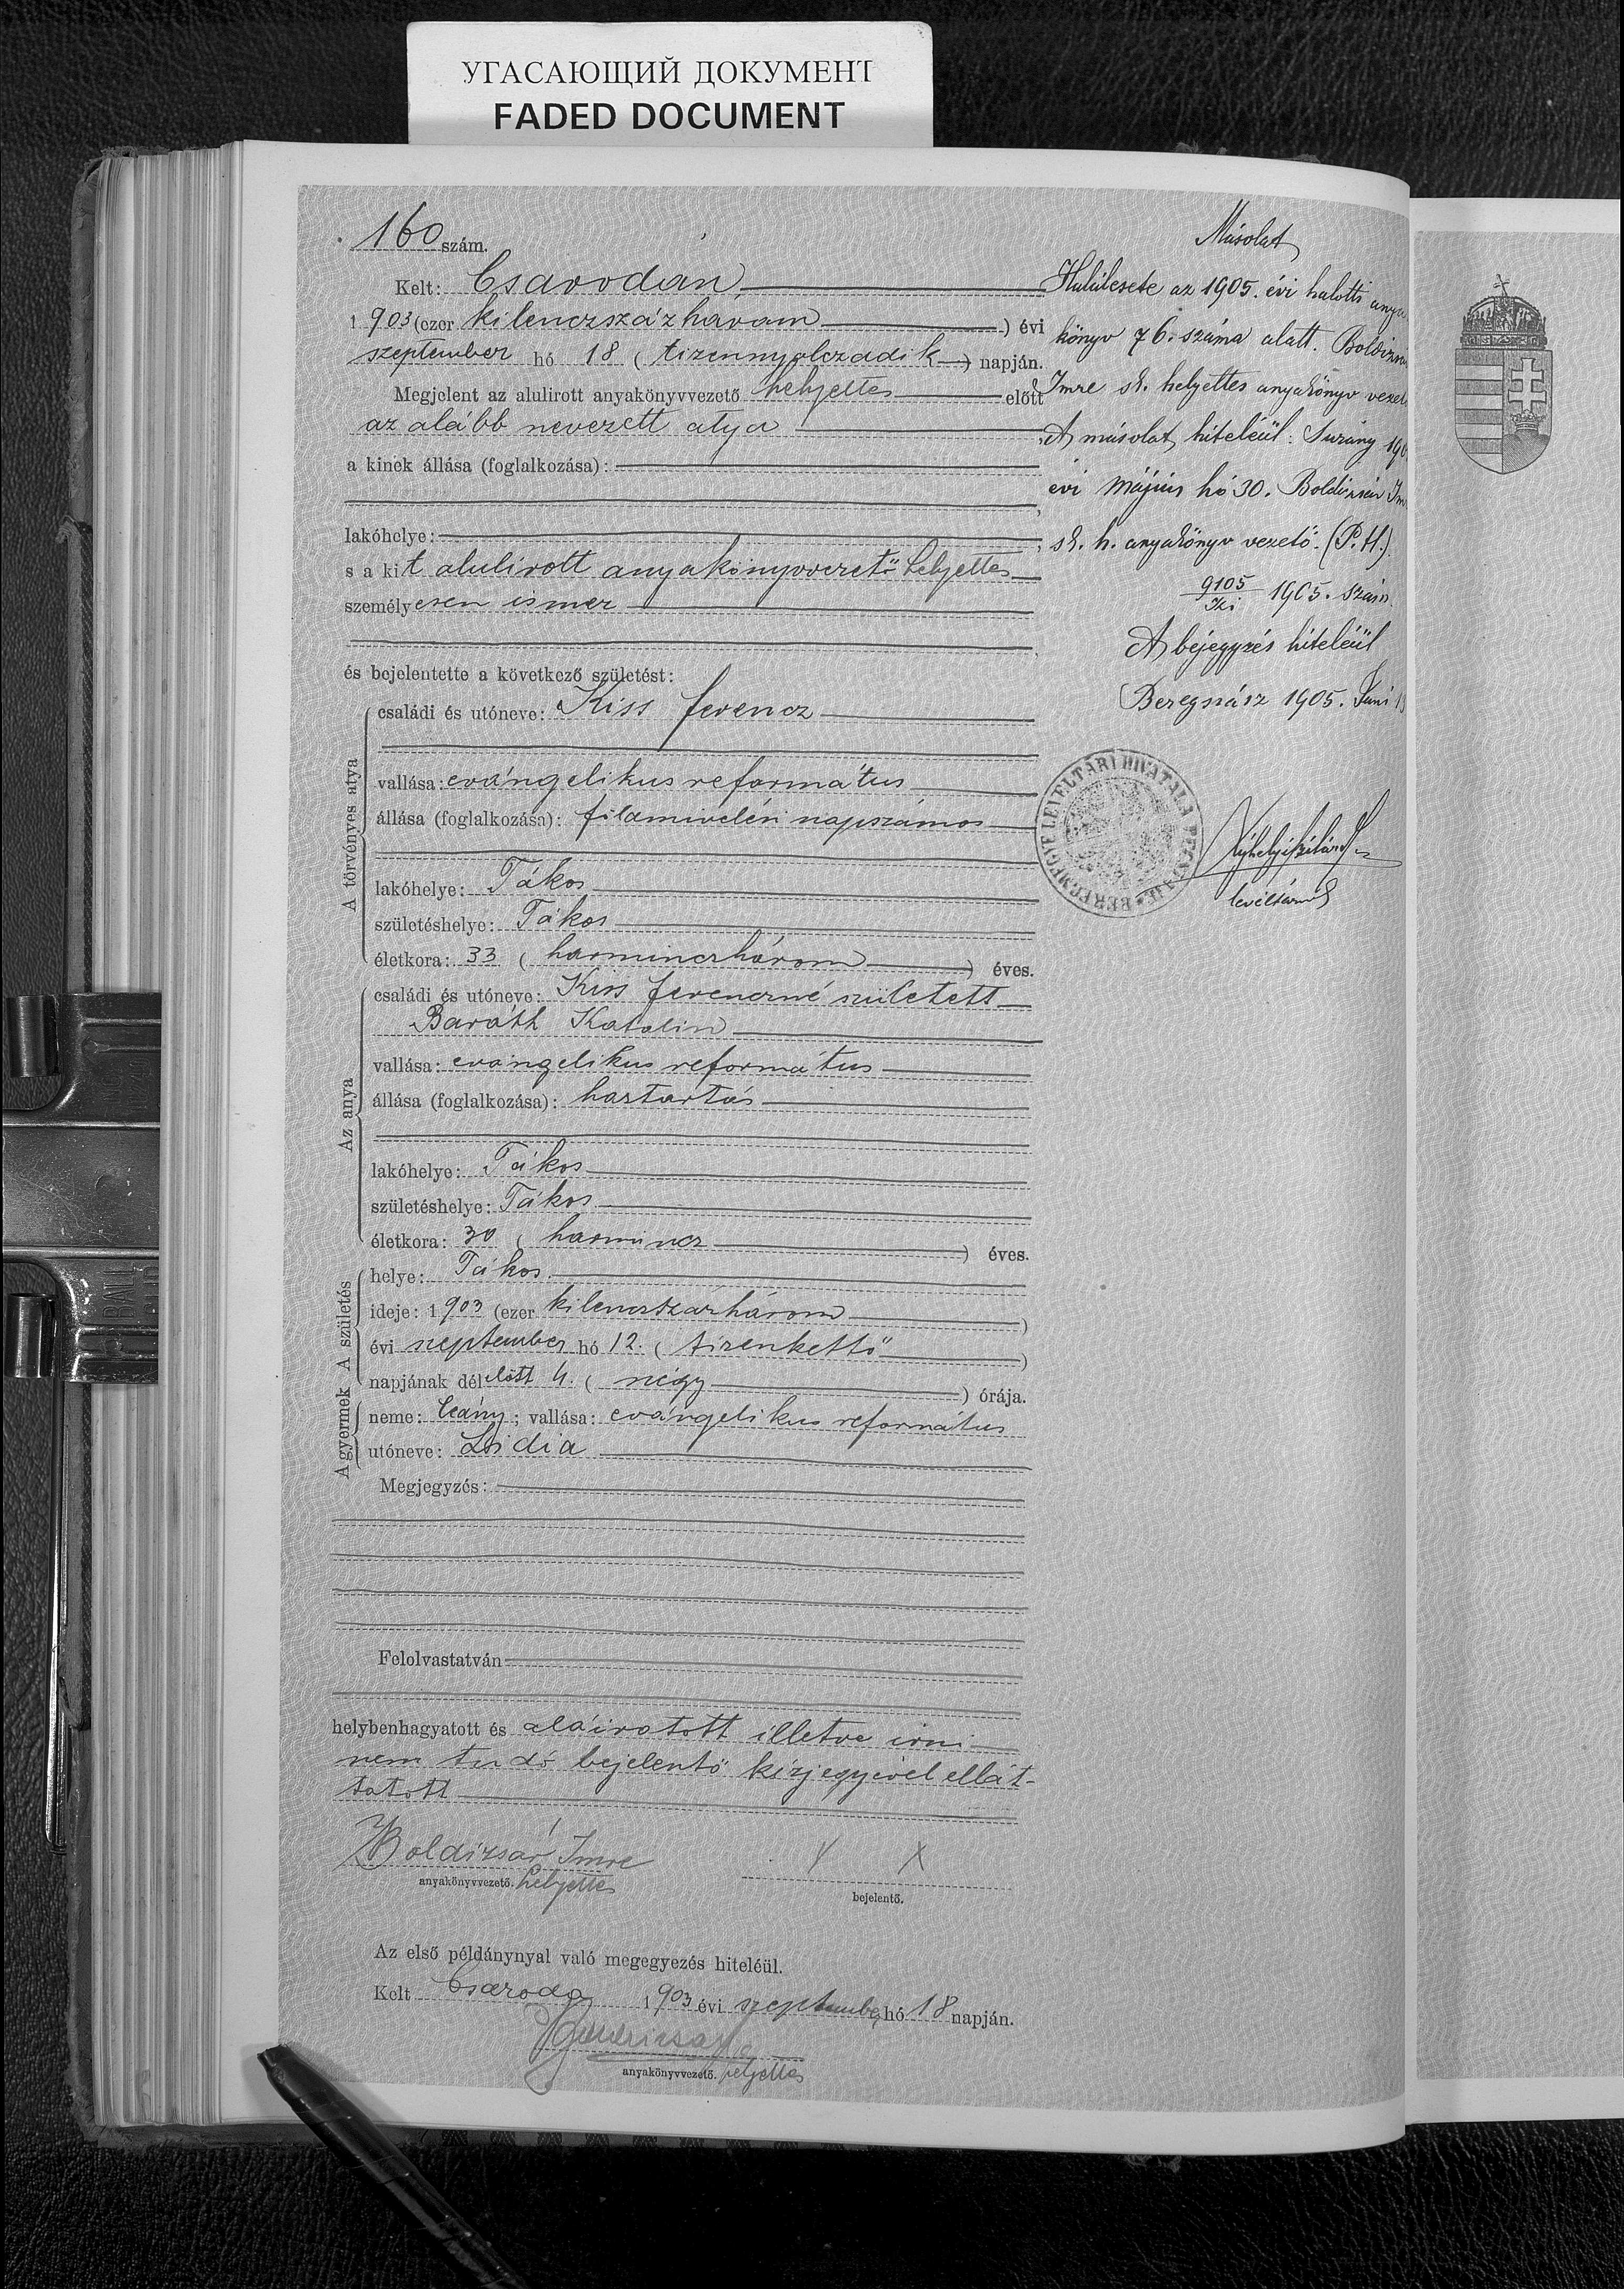 УГАСАЮЩИЙ ДОКУМЕНТ
FADED DOCUMENT
160 szám.
Kelt: Csarodán
1903 (ezer kilenczszázhárom) évi
szeptember hó 18 (tizennyolczadik) napján.
Megjelent az alulirott anyakönyvvezető helyettes előtt
az alább nevezett atya
a kinek állása (foglalkozása):
lakóhelye:
s a kit alulirott anyakönyvvezető helyettes
személyesen ismer
és bejelentette a következő születést:
A törvényes atya
családi és utóneve: Kiss Ferencz
vallása: evángelikus református
állása (foglalkozása): földmivelési napszámos
lakóhelye: Tákos
születéshelye: Tákos
életkora: 33 (harminczhárom) éves.
Az anya
családi és utóneve: Kiss Ferenczné született
Baráth Katalin
vallása: evangelikus református
állása (foglalkozása): háztartás
lakóhelye: Tákos
születéshelye: Tákos
életkora: 30 (harmincz) éves.
A születés
helye: Tákos
ideje: 1903 (ezer kilenczszázhárom)
évi szeptember hó 12. (tizenkettő)
napjának délelőtt 4. (négy) órája.
A gyermek
neme: leány; vallása: evángelikus református
utóneve: Lidia
Megjegyzés:
Felolvastatván
helybenhagyatott és aláiratott illetve irni
nem tudó bejelentő kézjegyével ellát-
tatott
Boldizsár Imre
anyakönyvvezető. helyettes
X X
bejelentő.
Az első példánynyal való megegyezés hiteléül.
Kelt Csaroda 1903 évi szeptember hó 18 napján.
anyakönyvvezető. helyettes
Másolat
Halálesete az 1905. évi halotti anya
könyv 76. száma alatt. Boldizsár
Imre sk. helyettes anyakönyv vezető
A másolat hiteléül: Surány 190
évi május hó 30. Boldizsár Im
sk. h. anyakönyv vezető. (P. H.)
9105 1905. szám.
A bejegyzés hiteléül
Beregszász 1905. Juni 1
BEREGMEGYE LEVÉLTÁRI HIVATALA
levéltárnok